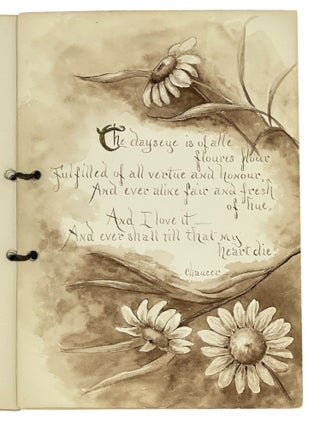 The dayseye is of alle
floures flour
Fulfilled of all vertue and honour,
And ever alike fair and fresh
of hue,
And I love it—
And ever shall till that my
heart die.
Chaucer